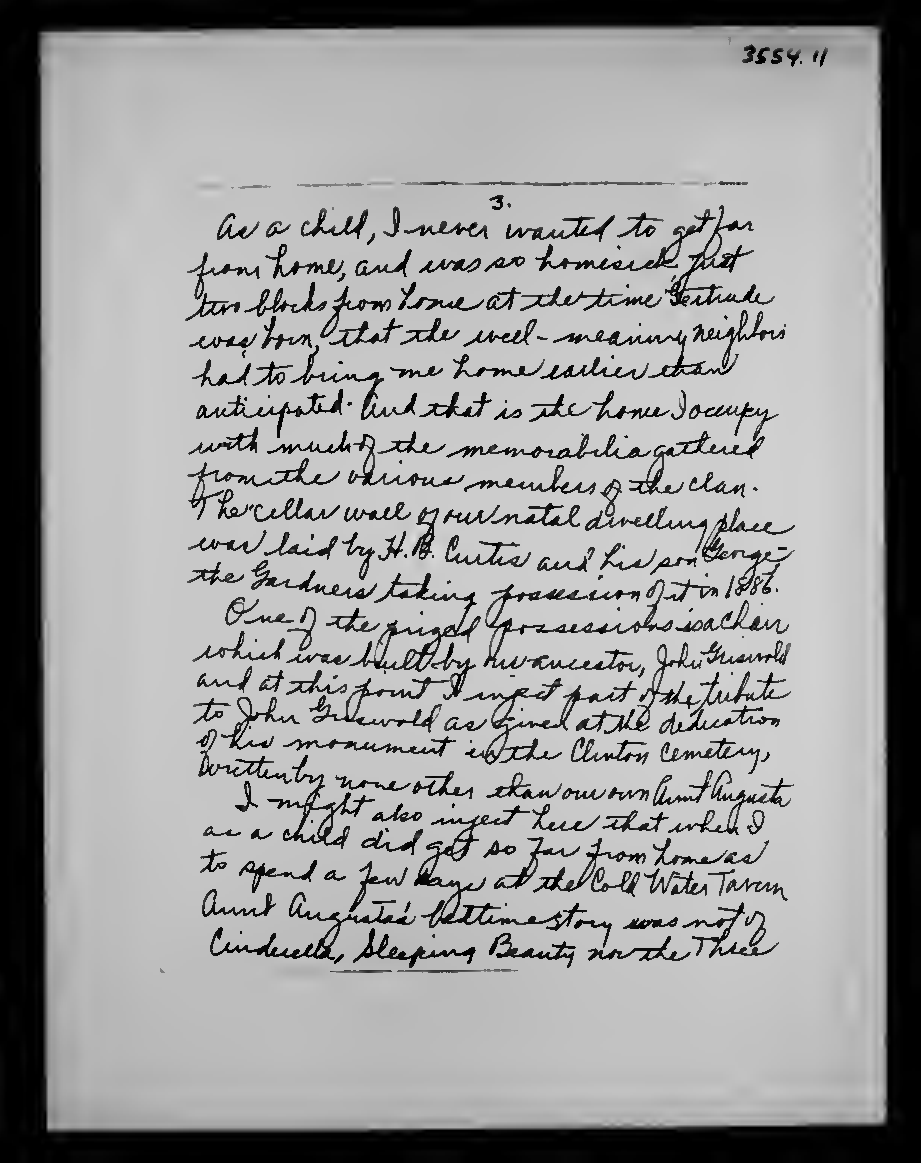 3554.11
3.
As a child, I never wanted to get far
from home, and was so homesick just
two blocks from home at the time Gertrude
was born, that the well-meaning neighbors
had to bring me home earlier than
anticipated. And that is the home I occupy
with much of the memorabilia gathered
from the various members of the clan.
The cellar wall of our natal dwelling place
was laid by H. B. Curtis and his son George-
the Gardners taking possession of it in 1886.
One of the prized possessions is a chair
which was built by our ancestor, John Griswold
and at this point I inject part of the tribute
to John Griswold as given at the dedication
of his monument in the Clinton Cemetery,
written by none other than our own Aunt Augusta
I might also inject here that when I
as a child did get so far from home as
to spend a few days at the Cold Water Tavern
Aunt Augusta's bedtime story was not of
Cinderella, Sleeping Beauty nor the Three